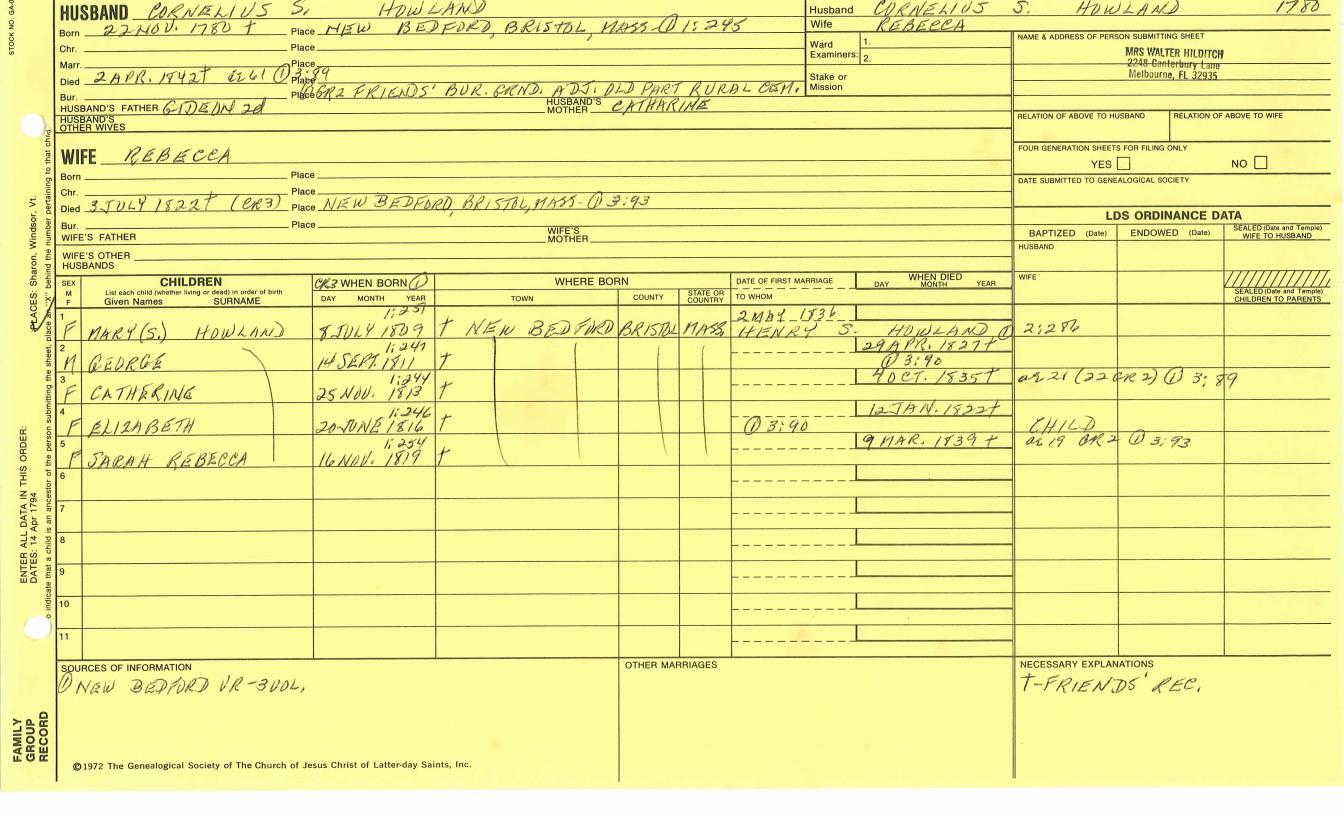 STOCK NO. GA-0
HUSBAND CORNELIUS S. HOWLAND
Born 22 NOV. 1780 † Place NEW BEDFORD, BRISTOL, MASS-① 1:245
Chr. Place
Marr. Place
Died 2 APR. 1842† ae61 ① 3:89 Place
Bur. Place GR2 FRIENDS' BUR. GRND. ADJ. OLD PART RURAL CEM.
HUSBAND'S FATHER GIDEON 2d HUSBAND'S MOTHER CATHARINE
HUSBAND'S OTHER WIVES
WIFE REBECCA
Born Place
Chr. Place
Died 3 JULY 1822† (CR3) Place NEW BEDFORD, BRISTOL, MASS-① 3:93
Bur. Place
WIFE'S FATHER WIFE'S MOTHER
WIFE'S OTHER HUSBANDS
Husband CORNELIUS S. HOWLAND 1780
Wife REBECCA
Ward Examiners: 1. 2.
Stake or Mission
NAME & ADDRESS OF PERSON SUBMITTING SHEET
MRS WALTER HILDITCH
2248 Canterbury Lane
Melbourne, FL 32935
RELATION OF ABOVE TO HUSBAND RELATION OF ABOVE TO WIFE
FOUR GENERATION SHEETS FOR FILING ONLY
YES NO
DATE SUBMITTED TO GENEALOGICAL SOCIETY
LDS ORDINANCE DATA
BAPTIZED (Date) ENDOWED (Date) SEALED (Date and Temple) WIFE TO HUSBAND
HUSBAND
WIFE
SEALED (Date and Temple) CHILDREN TO PARENTS
SEX M F
CHILDREN
List each child (whether living or dead) in order of birth
Given Names SURNAME
CR3 WHEN BORN ①
DAY MONTH YEAR
WHERE BORN
TOWN COUNTY STATE OR COUNTRY
DATE OF FIRST MARRIAGE
TO WHOM
WHEN DIED
DAY MONTH YEAR
1 1:251 2 MAY 1836
F MARY (S.) HOWLAND 8 JULY 1809 † NEW BEDFORD BRISTOL MASS HENRY S. HOWLAND ① 2:286
2 1:247 29 APR. 1827†
M GEORGE 14 SEPT. 1811 † ① 3:90
3 1:244 4 OCT. 1835† ae 21 (22 GR2) ① 3:89
F CATHERINE 25 NOV. 1813 †
4 1:246 12 JAN. 1822†
F ELIZABETH 20 JUNE 1816 † ① 3:90 CHILD
5 1:254 9 MAR. 1839 † ae 19 GR2 ① 3:93
F SARAH REBECCA 16 NOV. 1819 †
6
7
8
9
10
11
SOURCES OF INFORMATION
① NEW BEDFORD VR-3VOL.
OTHER MARRIAGES
NECESSARY EXPLANATIONS
†-FRIENDS' REC.
©1972 The Genealogical Society of The Church of Jesus Christ of Latter-day Saints, Inc.
FAMILY GROUP RECORD
ENTER ALL DATA IN THIS ORDER:
DATES: 14 Apr 1794
PLACES: Sharon, Windsor, Vt.
o indicate that a child is an ancestor of the person submitting the sheet, place an "X" behind the number pertaining to that child.